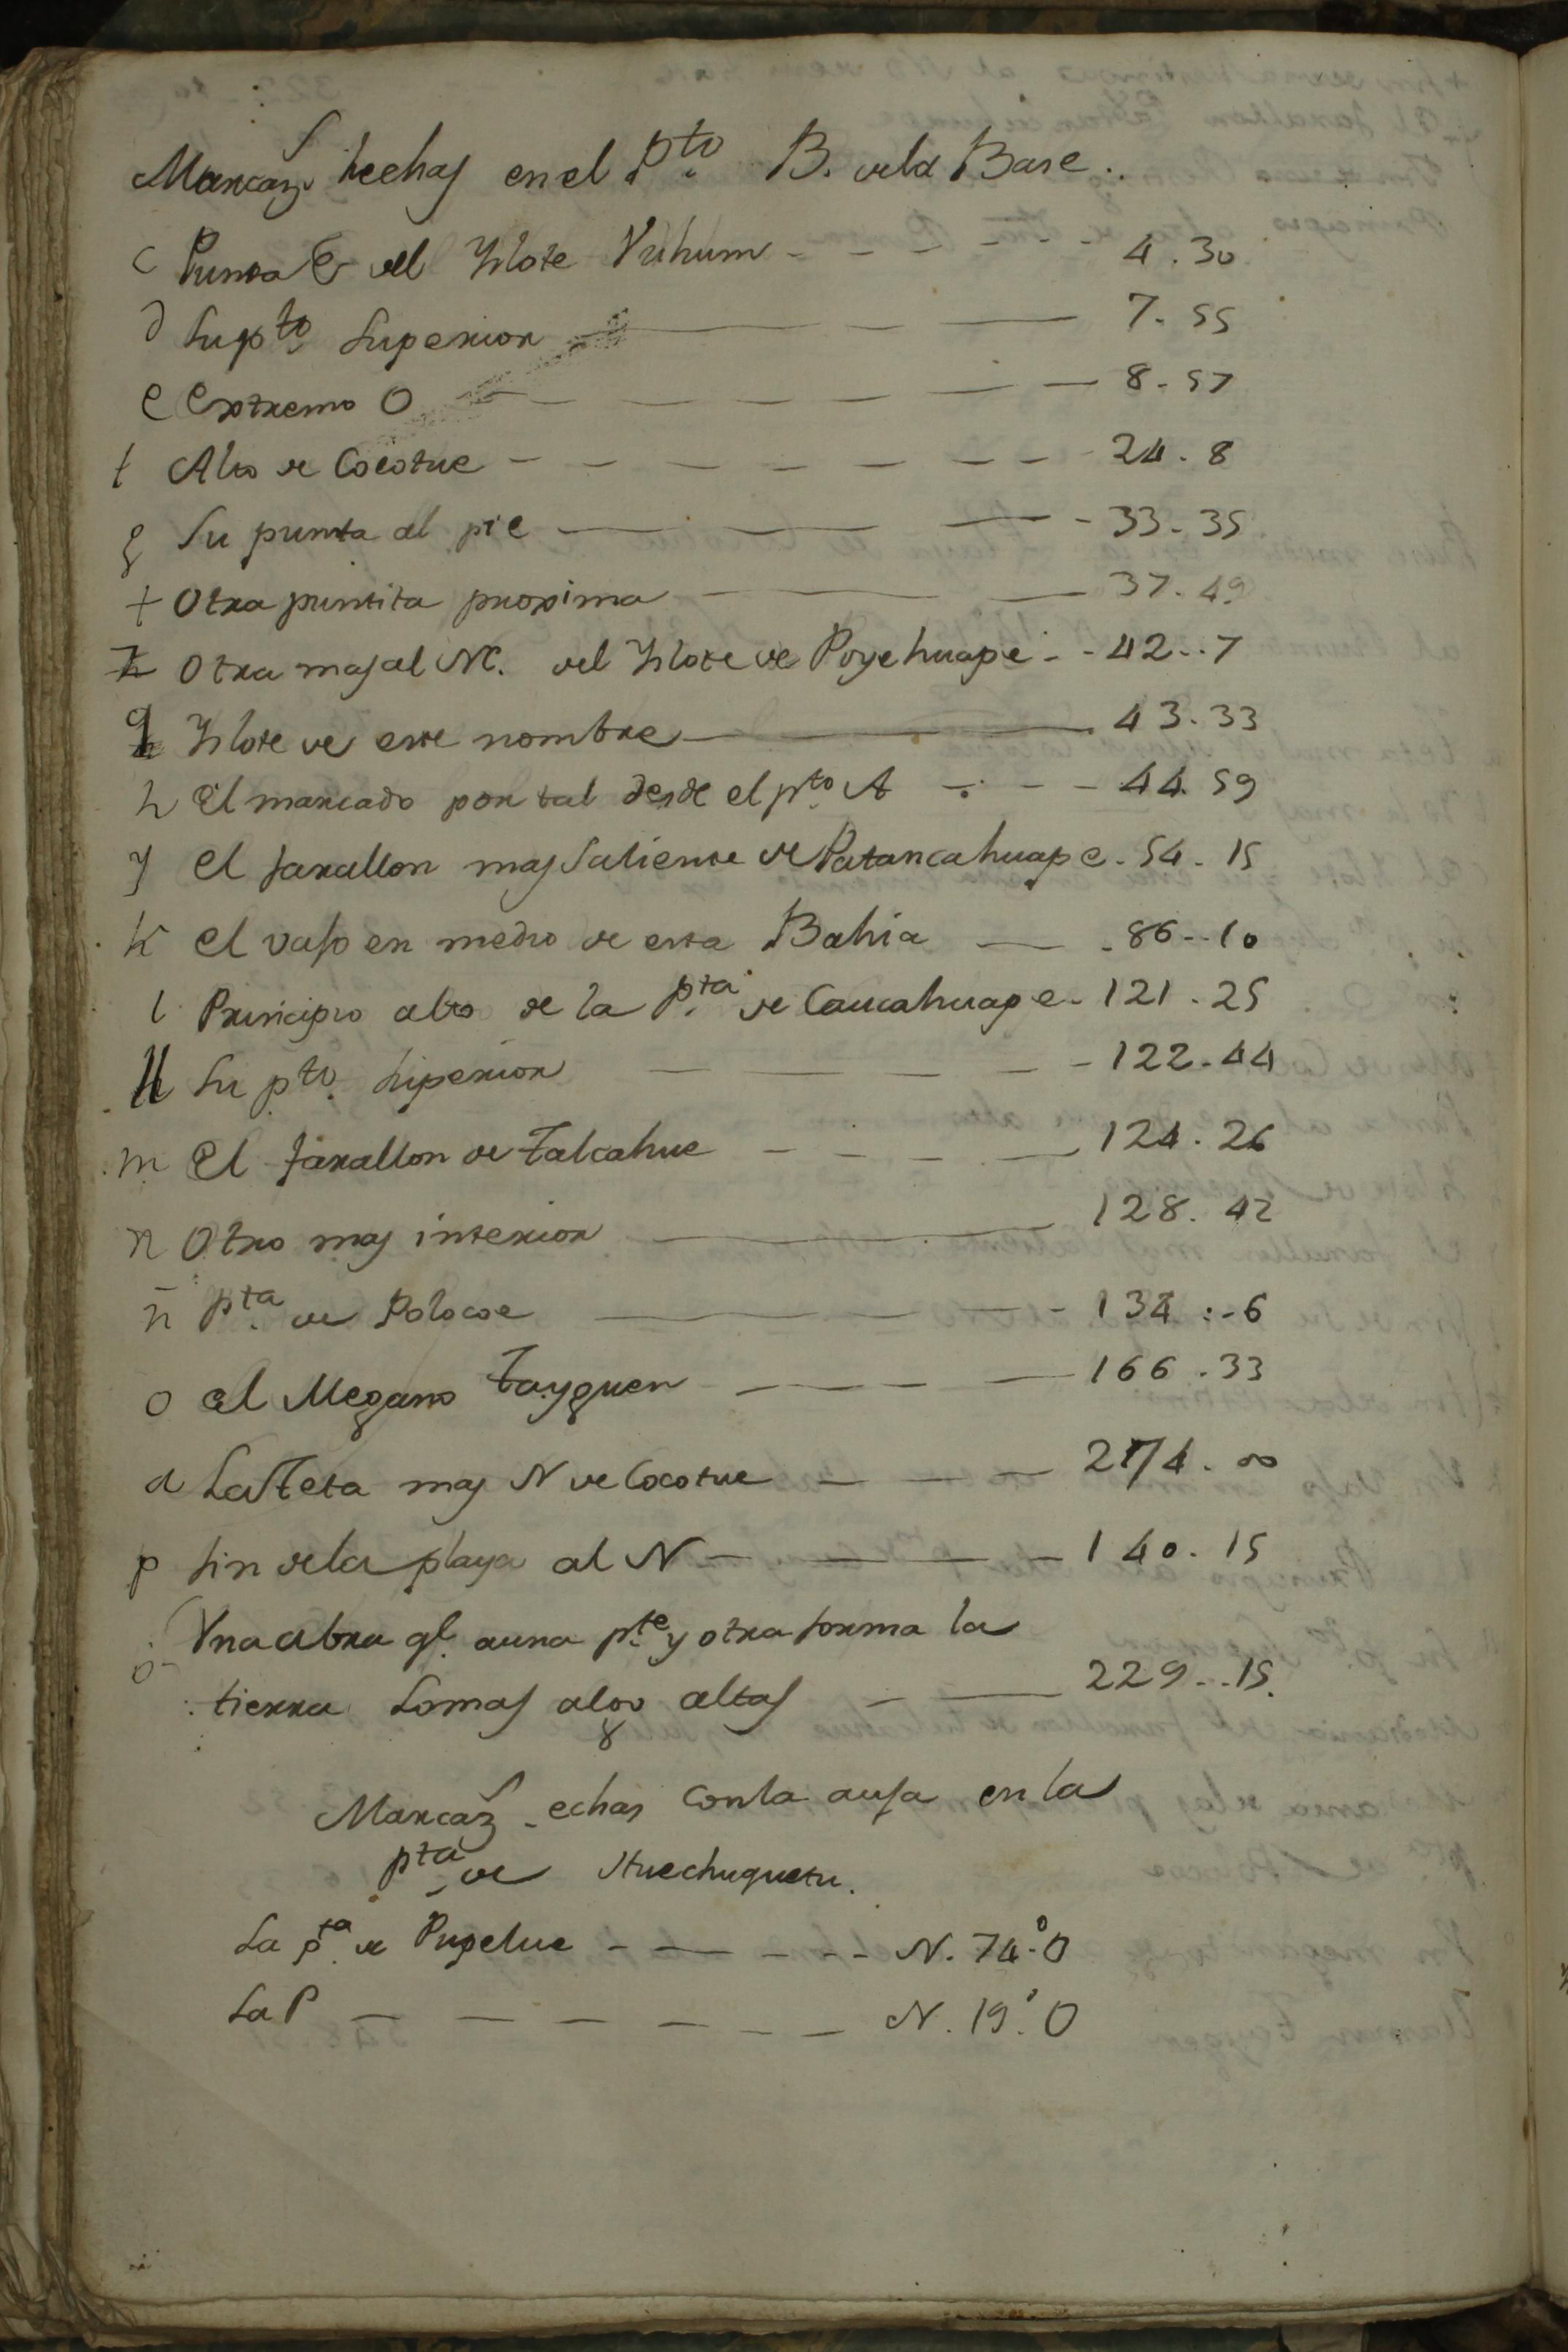 Marcaz.s hechas en el P.to B. de la Base.
c Punta E del Yslote Vrihum - - - - - - 4.30
d Su p.to Superior - - - 7.55
e Extremo O - - - - - - 8.57
f Alto de Cocotue - - - - - - - - 24.8
g Su punta al pie - - - - 33.35
+ Otra puntita proxima - - - 37.49
Otra mas al NE. del Yslote de Poyehuape - - 42..7
Yslote de este nombre - - 43.33
h El marcado por tal desde el p.to A - - - 44.59
y El farallon mas Saliente de Patancahuape - 54.15
k el vaso en medio de esta Bahia - - 86..10
l Principio alto de la P.ta de Caucahuape - 121.25
ll Su p.to Superior - - - - - 122.44
m El farallon de Talcahue - - - - - 124.26
n Otro mas interior - - - 128.42
ñ P.ta de Polocoe - - - - 134..6
o el Megano Tayguen - - - - 166.33
a La Teta mas N de Cocotue - - - 274.00
p fin de la playa al N - - - - 140.15
Vna abra q.e a una p.te y otra forma la
tierra Lomas algo altas - - 229..15.
Marcaz.s echas con la auja en la
p.ta de Huechuquetu.
La p.ta de Pupelue - - - - - - N. 74.° O
La P - - - - - - - N. 19.° O